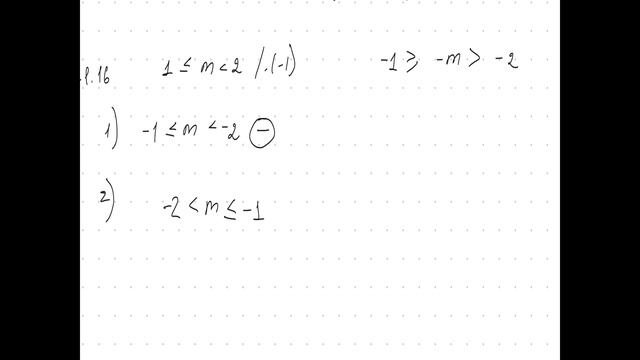 1.16 1 ≤ m < 2 /·(-1) -1 ≥ -m > -2
1) -1 ≤ m < -2 ⊖
2) -2 < m ≤ -1